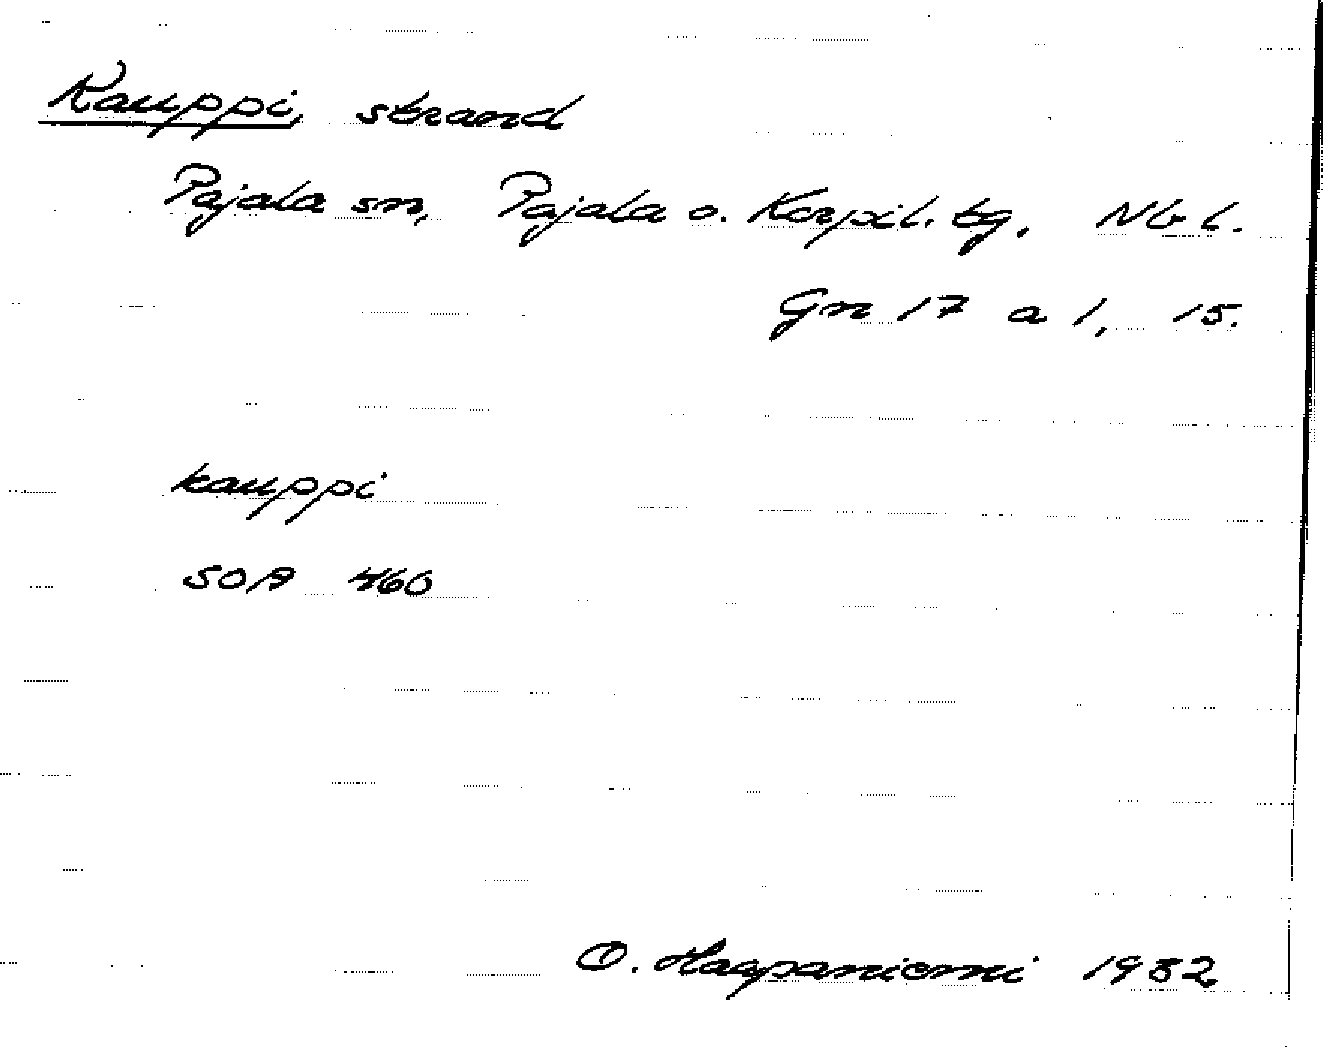 Kauppi, strand
Pajala sn, Pajala o. Korpil. tg, Nb l.
Gn 17 a 1, 15.
kauppi
SOA 460
O. Haapaniemi 1932